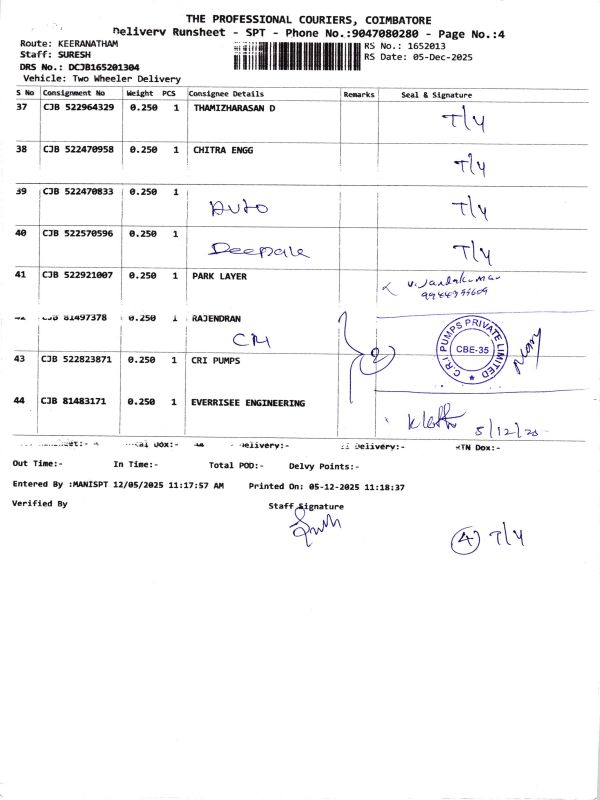 THE PROFESSIONAL COURIERS, COIMBATORE
Delivery Runsheet - SPT - Phone No.:9047080280 - Page No.:4
Route: KEERANATHAM
Staff: SURESH
DRS No.: DCJB165201304
Vehicle: Two Wheeler Delivery
RS No.: 1652013
RS Date: 05-Dec-2025
S No Consignment No Weight PCS Consignee Details Remarks Seal & Signature
37 CJB 522964329 0.250 1 THAMIZHARASAN D T/Y
38 CJB 522470958 0.250 1 CHITRA ENGG T/Y
39 CJB 522470833 0.250 1 AUTO T/Y
40 CJB 522570596 0.250 1 Deepak T/Y
41 CJB 522921007 0.250 1 PARK LAYER
42 CJB 81497378 0.250 1 RAJENDRAN
CRI
2
C.R.I. PUMPS PRIVATE LIMITED
CBE-35
43 CJB 522823871 0.250 1 CRI PUMPS
44 CJB 81483171 0.250 1 EVERRISEE ENGINEERING
5/12/25
Delivery:- Delivery:- RTN Dox:-
Out Time:- In Time:- Total POD:- Delvy Points:-
Entered By :MANISPT 12/05/2025 11:17:57 AM Printed On: 05-12-2025 11:18:37
Verified By Staff Signature
4 T/Y